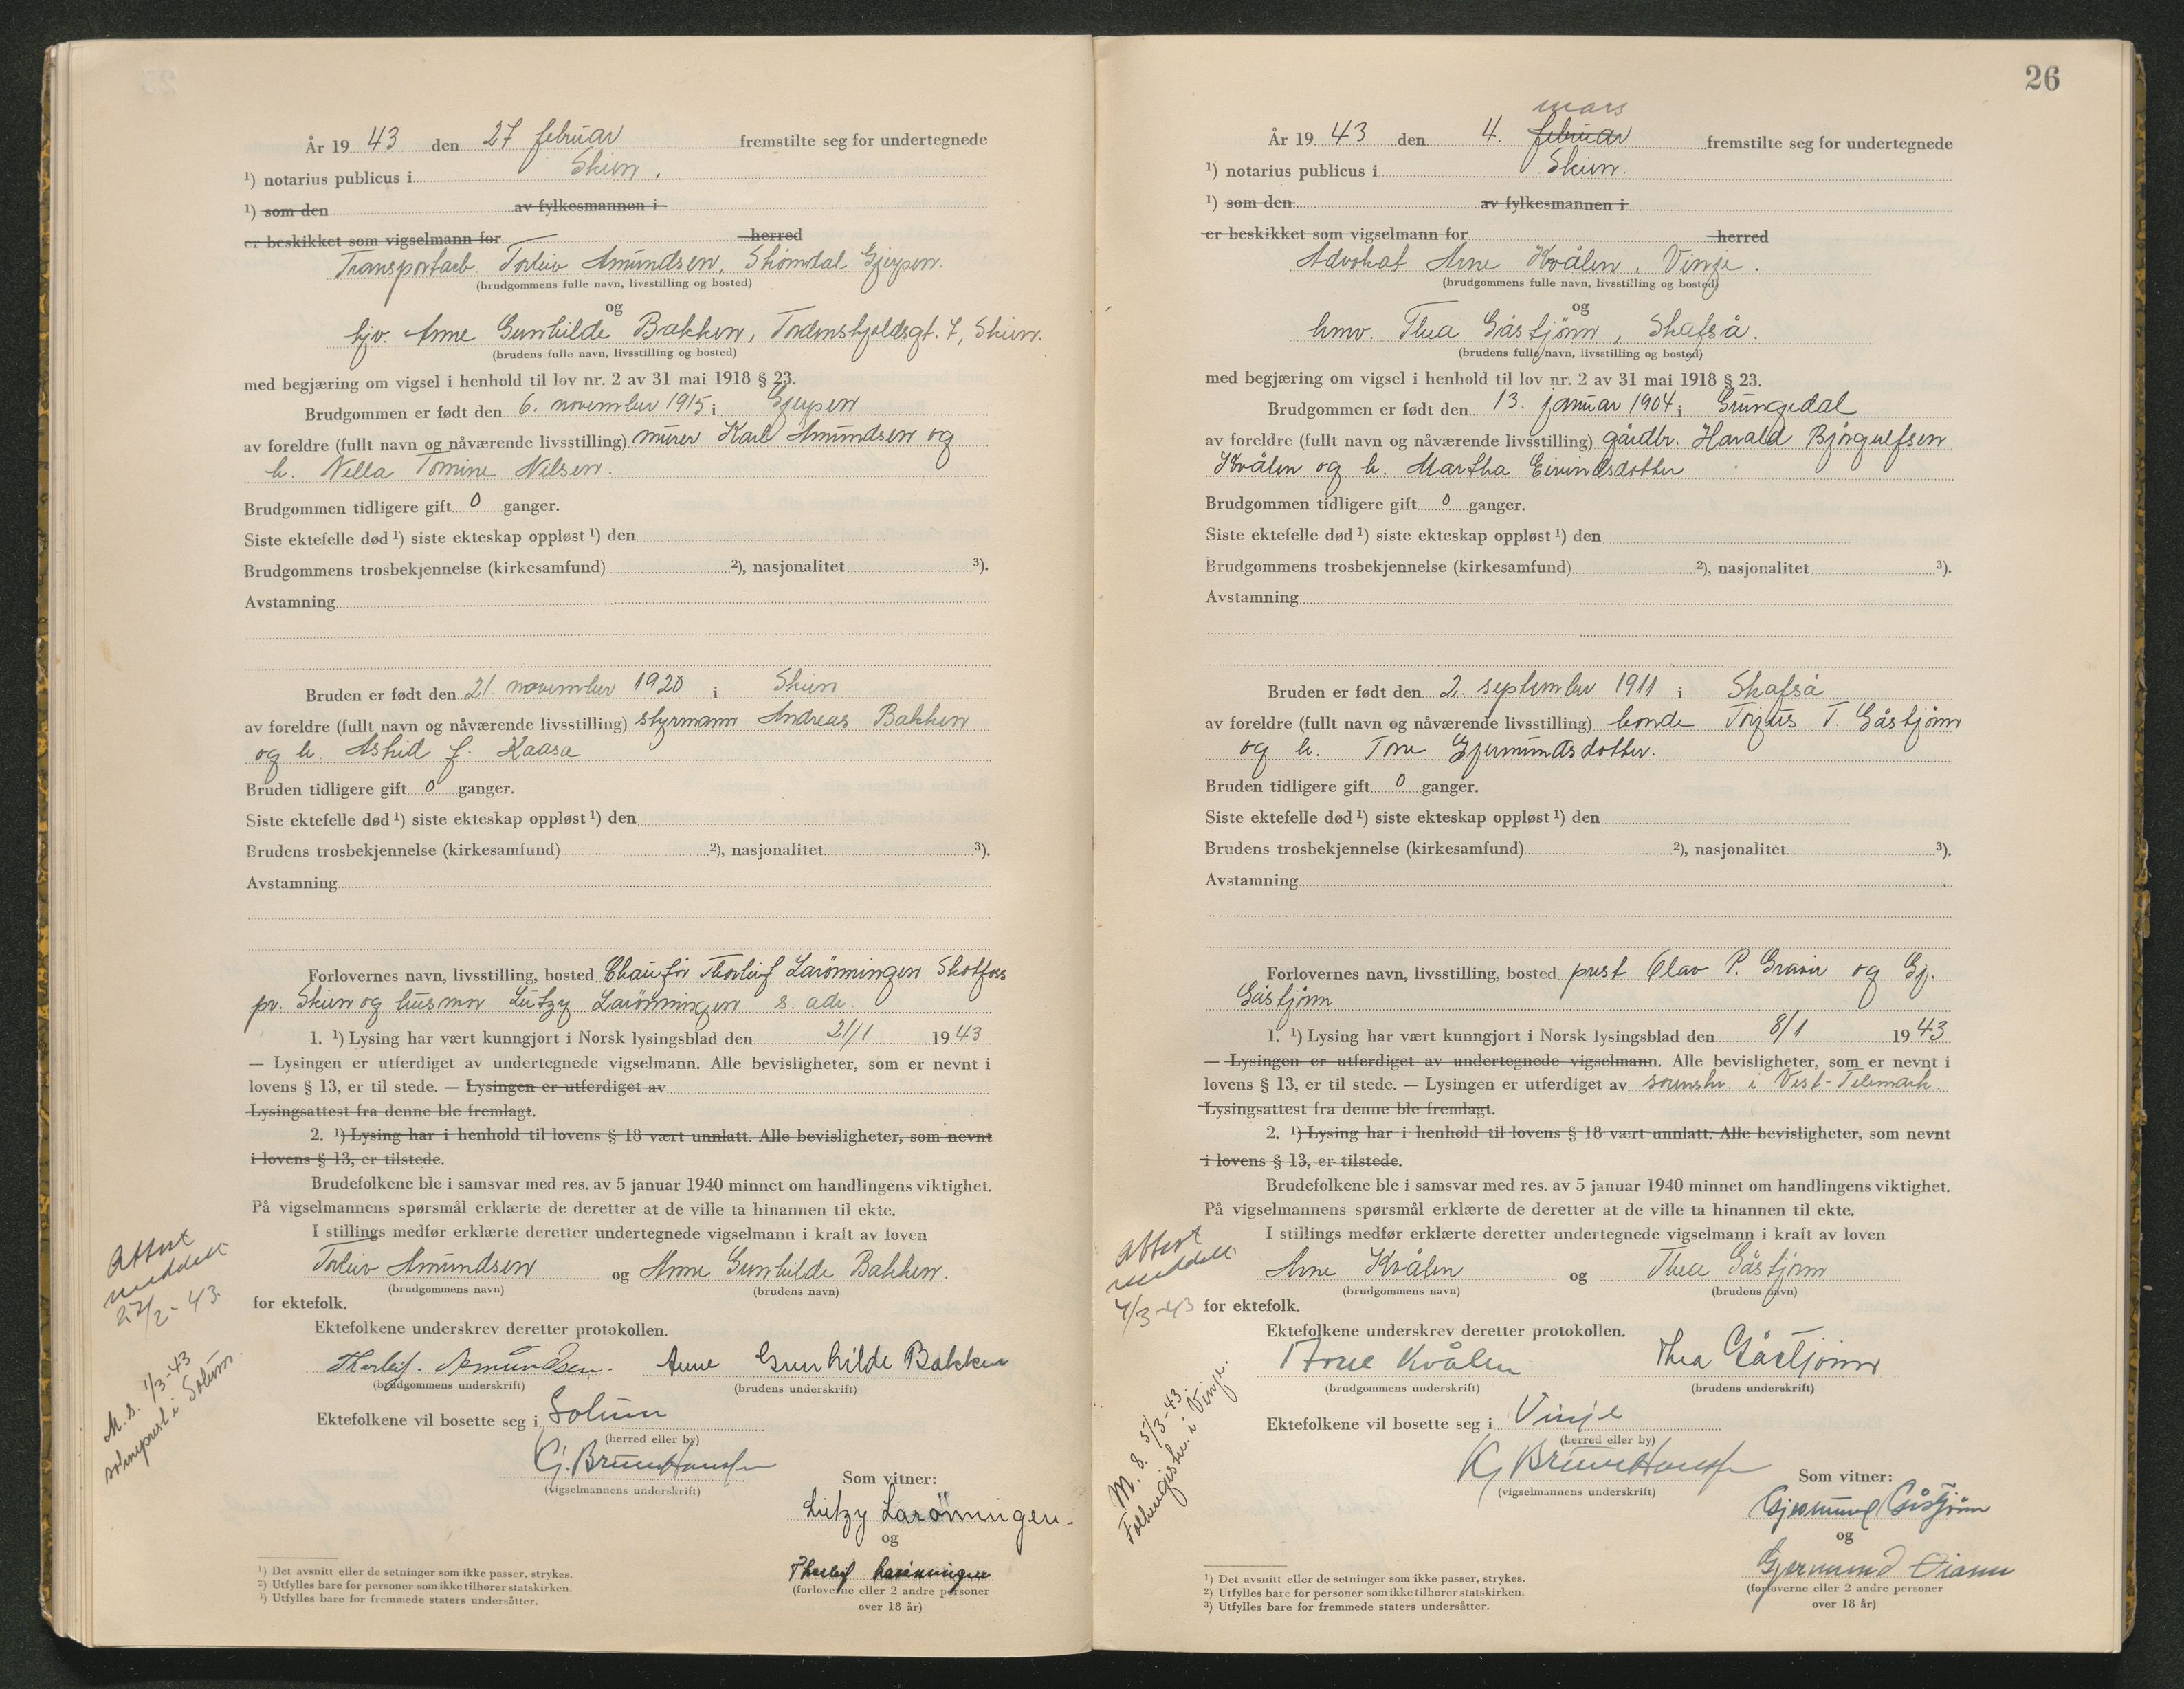 År 19 43 den 27 februar fremstilte seg for undertegnede
¹) notarius publicus i Skien,
¹) som den av fylkesmannen i
er beskikket som vigselmann for herred
Transportarb. Torleiv Amundsen, Skomdal Gjerpen.
(brudgommens fulle navn, livsstilling og bosted)
og
hjv. Anne Gunhilde Bakken, Tordenskjoldsgt. 7, Skien.
(brudens fulle navn, livsstilling og bosted)
med begjæring om vigsel i henhold til lov nr. 2 av 31 mai 1918 § 23.
Brudgommen er født den 6. november 1915 i Gjerpen
av foreldre (fullt navn og nåværende livsstilling) murer Karl Amundsen og
h. Nella Tomine Nilsen.
Brudgommen tidligere gift 0 ganger.
Siste ektefelle død ¹) siste ekteskap oppløst ¹) den
Brudgommens trosbekjennelse (kirkesamfund) ²), nasjonalitet ³).
Avstamning
Bruden er født den 21. november 1920 i Skien
av foreldre (fullt navn og nåværende livsstilling) styrmann Andreas Bakken
og h. Astrid f. Kaasa
Bruden tidligere gift 0 ganger.
Siste ektefelle død ¹) siste ekteskap oppløst ¹) den
Brudens trosbekjennelse (kirkesamfund) ²), nasjonalitet ³).
Avstamning
Forlovernes navn, livsstilling, bosted Chaufør Thorleif Larönningen Skotfoss
pr. Skien og husmor Lutzy Larönningen s. adr.
1. ¹) Lysing har vært kunngjort i Norsk lysingsblad den 21/1 1943
— Lysingen er utferdiget av undertegnede vigselmann. Alle bevisligheter, som er nevnt i
lovens § 13, er til stede. — Lysingen er utferdiget av
Lysingsattest fra denne ble fremlagt.
2. ¹) Lysing har i henhold til lovens § 18 vært unnlatt. Alle bevisligheter, som nevnt
i lovens § 13, er tilstede.
Brudefolkene ble i samsvar med res. av 5 januar 1940 minnet om handlingens viktighet.
På vigselmannens spørsmål erklærte de deretter at de ville ta hinannen til ekte.
I stillings medfør erklærte deretter undertegnede vigselmann i kraft av loven
Torleiv Amundsen og Anne Gunhilde Bakken.
(brudgommens navn) (brudens navn)
for ektefolk.
Ektefolkene underskrev deretter protokollen.
Thorleif. Amundsen. Anne Gunhilde Bakken
(brudgommens underskrift) (brudens underskrift)
Ektefolkene vil bosette seg i Solum
(herred eller by)
(vigselmannens underskrift)
Som vitner:
Lutzy Larönningen.
og
Thorleif Larönningen
(forloverne eller 2 andre personer
over 18 år)
Attest
meddelt
27/2-43.
M. s. 1/3-43
sokneprest i Solum.
¹) Det avsnitt eller de setninger som ikke passer, strykes.
²) Utfylles bare for personer som ikke tilhører statskirken.
³) Utfylles bare for fremmede staters undersåtter.
26
mars
År 19 43 den 4. februar fremstilte seg for undertegnede
¹) notarius publicus i Skien.
¹) som den av fylkesmannen i
er beskikket som vigselmann for herred
Advokat Arne Kvålen, Vinje.
(brudgommens fulle navn, livsstilling og bosted)
og
hmv. Thea Gåstjønn, Skafså.
(brudens fulle navn, livsstilling og bosted)
med begjæring om vigsel i henhold til lov nr. 2 av 31 mai 1918 § 23.
Brudgommen er født den 13. januar 1904 i Grungedal
av foreldre (fullt navn og nåværende livsstilling) gårdbr. Harald Bjørgulfsen
Kvålen og h. Martha Eivindsdotter
Brudgommen tidligere gift 0 ganger.
Siste ektefelle død ¹) siste ekteskap oppløst ¹) den
Brudgommens trosbekjennelse (kirkesamfund) ²), nasjonalitet ³).
Avstamning
Bruden er født den 2. september 1911 i Skafså
av foreldre (fullt navn og nåværende livsstilling) bonde Torjus T. Gåstjønn
og h. Tone Gjermundsdotter.
Bruden tidligere gift 0 ganger.
Siste ektefelle død ¹) siste ekteskap oppløst ¹) den
Brudens trosbekjennelse (kirkesamfund) ²), nasjonalitet ³).
Avstamning
Forlovernes navn, livsstilling, bosted prest Olav P. Graver og Gj.
Gåstjønn
1. ¹) Lysing har vært kunngjort i Norsk lysingsblad den 8/1 1943
— Lysingen er utferdiget av undertegnede vigselmann. Alle bevisligheter, som er nevnt i
lovens § 13, er til stede. — Lysingen er utferdiget av sorenskr. i Vest-Telemark.
Lysingsattest fra denne ble fremlagt.
2. ¹) Lysing har i henhold til lovens § 18 vært unnlatt. Alle bevisligheter, som nevnt
i lovens § 13, er tilstede.
Brudefolkene ble i samsvar med res. av 5 januar 1940 minnet om handlingens viktighet.
På vigselmannens spørsmål erklærte de deretter at de ville ta hinannen til ekte.
I stillings medfør erklærte deretter undertegnede vigselmann i kraft av loven
Arne Kvålen og Thea Gåstjønn
(brudgommens navn) (brudens navn)
for ektefolk.
Ektefolkene underskrev deretter protokollen.
Arne Kvålen Thea Gåstjønn
(brudgommens underskrift) (brudens underskrift)
Ektefolkene vil bosette seg i Vinje
(herred eller by)
(vigselmannens underskrift)
Som vitner:
Gjermund Gåstjønn
og
Gjermund
(forloverne eller 2 andre personer
over 18 år)
Attest
meddelt.
4/3-43
M. s. 5/3-43
Folkeregistr. i Vinje.
¹) Det avsnitt eller de setninger som ikke passer, strykes.
²) Utfylles bare for personer som ikke tilhører statskirken.
³) Utfylles bare for fremmede staters undersåtter.